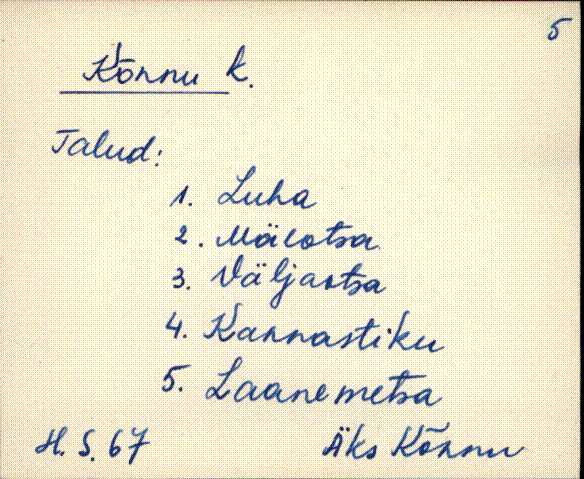 5
Kõnnu k.
Talud:
1. Luha
2. Mäeotsa
3. Väljaotsa
4. Kannastiku
5. Laanemetsa
H. S. 67
Äks Kõnnu